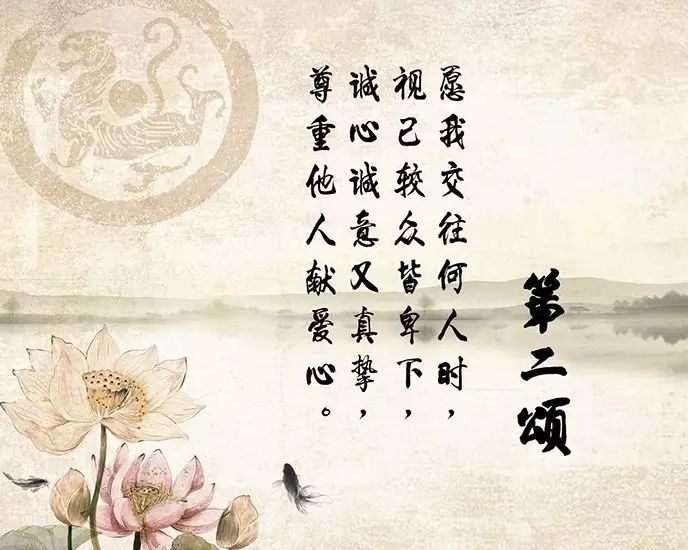 第二颂
愿我交往何人时，
视己较众皆卑下，
诚心诚意又真挚，
尊重他人献爱心。